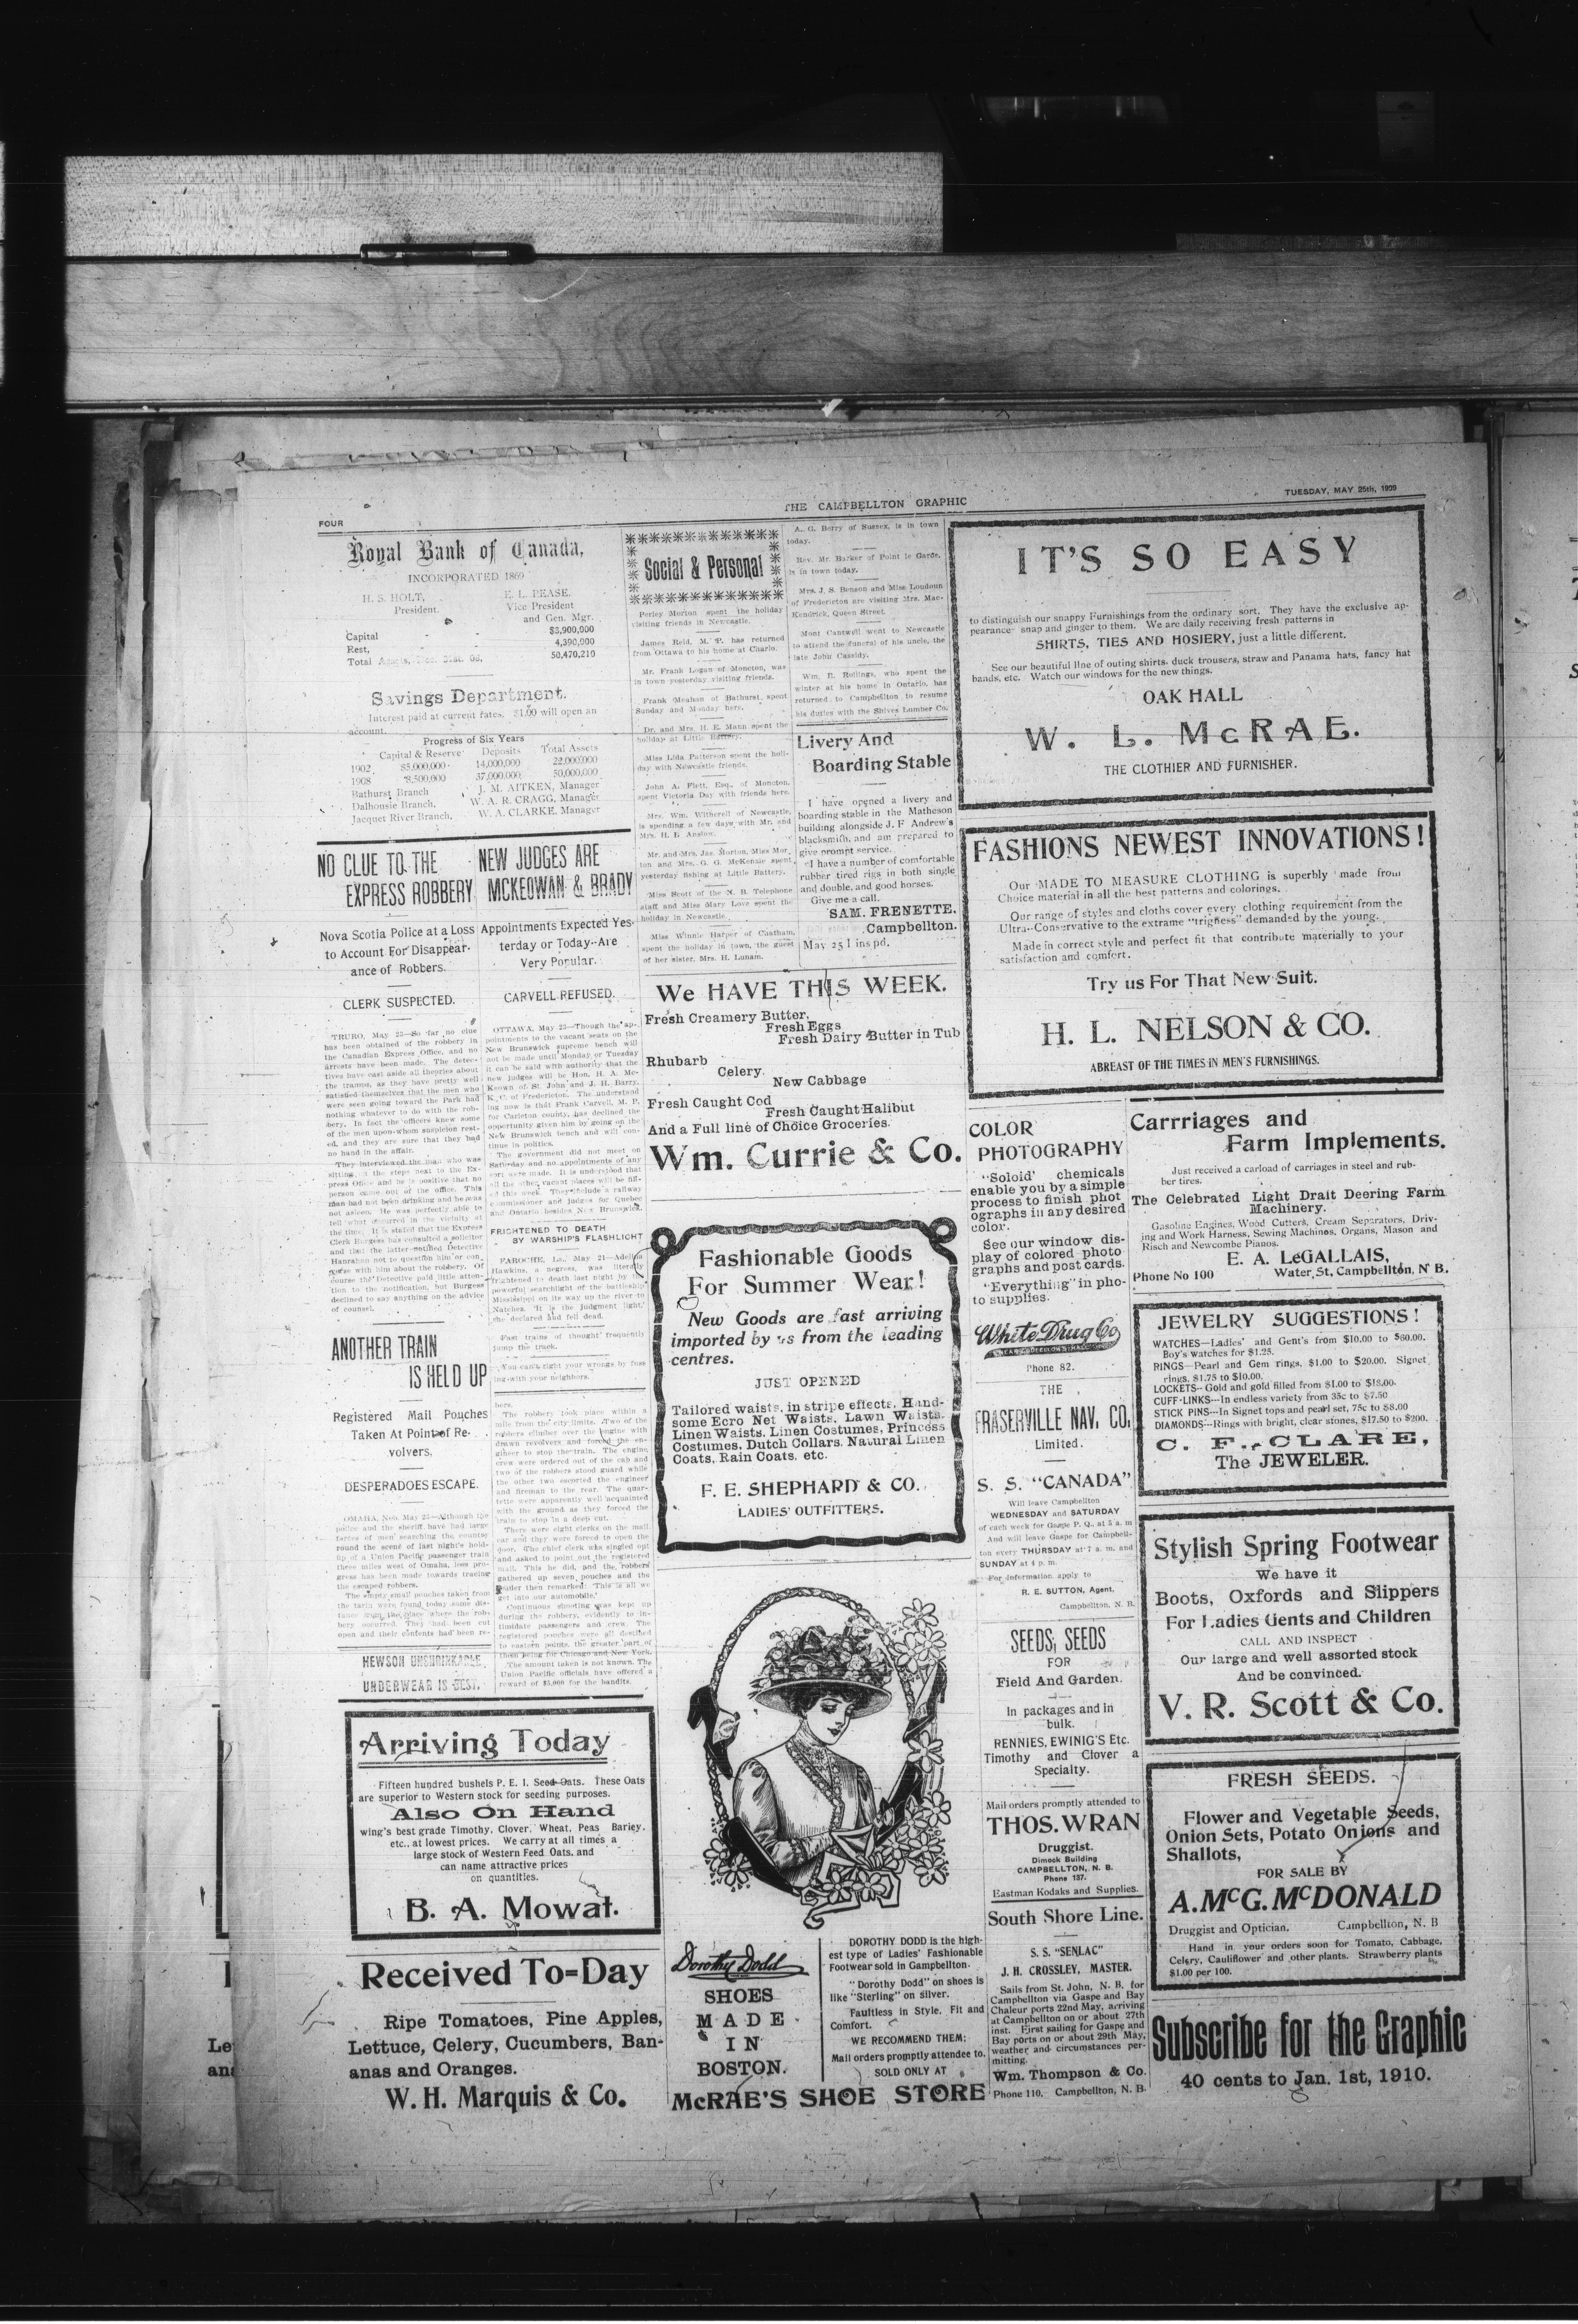 FOUR
THE CAMPBELLTON GRAPHIC
TUESDAY, MAY 25th, 1909
Royal Bank of Canada,
INCORPORATED 1869
H. S. HOLT, E. L. PEASE,
President. Vice President
and Gen. Mgr.
Capital - - $3,900,000
Rest, - - 4,390,000
Total Assets, Dec. 31st. 08, 50,470,210
Savings Department.
Interest paid at current rates. $1.00 will open an
account.
Progress of Six Years
Capital & Reserve Deposits Total Assets
1902 $5,000,000 14,000,000 22,000,000
1908 8,500,000 37,000,000 50,000,000
Bathurst Branch J. M. AITKEN, Manager
Dalhousie Branch, W. A. R. CRAGG, Manager
Jacquet River Branch, W. A. CLARKE, Manager
NO CLUE TO THE
EXPRESS ROBBERY
Nova Scotia Police at a Loss
to Account For Disappear-
ance of Robbers.
CLERK SUSPECTED.
TRURO, May 23—So far no clue
has been obtained of the robbery in
the Canadian Express Office, and no
arrests have been made. The detec-
tives have cast aside all theories about
the tramps, as they have pretty well
satisfied themselves that the men who
were seen going toward the Park had
nothing whatever to do with the rob-
bery. In fact the officers knew some
of the men upon whom suspicion rest-
ed, and they are sure that they had
no hand in the affair.
They interviewed the man who was
sitting on the steps next to the Ex-
press Office and he is positive that no
person came out of the office. This
man had not been drinking and he was
not asleep. He was perfectly able to
tell what occurred in the vicinity at
the time. It is stated that the Express
Clerk Burgess has consulted a solicitor
and that the latter notified Detective
Hanrahan not to question him or con-
verse with him about the robbery. Of
course the Detective paid little atten-
tion to the notification, but Burgess
declined to say anything on the advice
of counsel.
ANOTHER TRAIN
IS HELD UP
Registered Mail Pouches
Taken At Point of Re-
volvers.
DESPERADOES ESCAPE.
OMAHA, Neb. May 23—Although the
police and the sheriff have had large
forces of men searching the country
round the scene of last night's hold-
up of a Union Pacific passenger train
three miles west of Omaha, less pro-
gress has been made towards tracing
the escaped robbers.
The empty small pouches taken from
the tarin were found today some dis-
tance from the place where the rob-
bery occurred. They had been cut
open and their contents had been re-
HEWSON UNSHRINKABLE
UNDERWEAR IS BEST.
NEW JUDGES ARE
MCKEOWAN & BRADY
Appointments Expected Yes-
terday or Today--Are
Very Popular.
CARVELL REFUSED.
OTTAWA, May 23—Though the ap-
pointments to the vacant seats on the
New Brunswick supreme bench will
not be made until Monday or Tuesday
it can be said with authority that the
new judges will be Hon. H. A. Mc-
Keown of St. John and J. H. Barry,
K. C. of Fredericton. The understand
ing now is that Frank Carvell, M. P.
for Carleton county, has declined the
opportunity given him by going on the
New Brunswick bench and will con-
tinue in politics.
The government did not meet on
Saturday and no appointments of any
sort were made. It is understood that
all the other vacant places will be fill-
ed this week. They include a railway
commissioner and judges for Quebec
and Ontario besides New Brunswick.
FRIGHTENED TO DEATH
BY WARSHIP'S FLASHLIGHT
FAROCHE, La., May 21—Adelina
Hawkins, a negress, was literally
frightened to death last night by the
powerful searchlight of the battleship
Mississippi on its way up the river to
Natchez. 'It is the judgment light,'
she declared and fell dead.
Fast trains of thought frequently
jump the track.
You can't right your wrongs by fuss
ing with your neighbors.
bers.
The robbery took place within a
mile from the city limits. Two of the
robbers climber over the engine with
drawn revolvers and forced the en-
gineer to stop the train. The engine
crew were ordered out of the cab and
two of the robbers stood guard while
the other two escorted the engineer
and fireman to the rear. The quar-
tette were apparently well acquainted
with the ground as they forced the
train to stop in a deep cut.
There were eight clerks on the mail
car and they were forced to open the
door. The chief clerk was singled out
and asked to point out the registered
mail. This he did, and the robbers
gathered up seven pouches and the
leader then remarked: 'This is all we
get into our automobile.'
Continuous shooting was kept up
during the robbery, evidently to in-
timidate passengers and crew. The
registered pouches were all destined
to eastern points, the greater part of
them being for Chicago and New York.
The amount taken is not known. The
Union Pacific officials have offered a
reward of $5,000 for the bandits.
Arriving Today
Fifteen hundred bushels P. E. I. Seed Oats. These Oats
are superior to Western stock for seeding purposes.
Also On Hand
wing's best grade Timothy, Clover, Wheat, Peas Barley,
etc., at lowest prices. We carry at all times a
large stock of Western Feed Oats, and
can name attractive prices
on quantities.
B. A. Mowat.
Received To=Day
Ripe Tomatoes, Pine Apples,
Lettuce, Celery, Cucumbers, Ban-
anas and Oranges.
W. H. Marquis & Co.
Social & Personal
Perley Morton spent the holiday
visiting friends in Newcastle.
James Reid, M. P. has returned
from Ottawa to his home at Charlo.
Mr. Frank Lougun of Moncton, was
in town yesterday visiting friends.
Frank Meahan of Bathurst, spent
Sunday and Monday here.
Dr. and Mrs. H. E. Mann spent the
holiday at Little Battery.
Miss Lida Patterson spent the holi-
day with Newcastle friends.
John A. Flett, Esq., of Moncton,
spent Victoria Day with friends here.
Mrs. Wm. Witherell of Newcastle,
is spending a few days with Mr. and
Mrs. H. B. Anslow.
Mr. and Mrs. Jas. Morton, Miss Mor-
ton and Mrs. G. G. McKenzie spent
yesterday fishing at Little Battery.
Miss Scott of the N. B. Telephone
staff and Miss Mary Love spent the
holiday in Newcastle.
Miss Winnie Harper of Chatham,
spent the holiday in town, the guest
of her sister, Mrs. H. Lunam.
A. G. Berry of Sussex, is in town
today.
Rev. Mr. Barker of Point le Garde,
is in town today.
Mrs. J. S. Benson and Miss Loudoun
of Fredericton are visiting Mrs. Mac-
Kendrick, Queen Street.
Mont Cantwell went to Newcastle
to attend the funeral of his uncle, the
late John Cassidy.
Wm. B. Rollings, who spent the
winter at his home in Ontario, has
returned to Campbellton to resume
his duties with the Shives Lumber Co.
Livery And
Boarding Stable
I have opened a livery and
boarding stable in the Matheson
building alongside J. F Andrew's
blacksmith, and am prepared to
give prompt service.
I have a number of comfortable
rubber tired rigs in both single
and double, and good horses.
Give me a call.
SAM. FRENETTE.
Campbellton.
May 25 1 ins pd.
We HAVE THIS WEEK.
Fresh Creamery Butter,
Fresh Eggs
Fresh Dairy Butter in Tub
Rhubarb
Celery.
New Cabbage
Fresh Caught Cod
Fresh Caught Halibut
And a Full line of Choice Groceries.
Wm. Currie & Co.
Fashionable Goods
For Summer Wear!
New Goods are fast arriving
imported by us from the leading
centres.
JUST OPENED
Tailored waists, in stripe effects, Hand-
some Ecro Net Waists, Lawn Waists,
Linen Waists, Linen Costumes, Princess
Costumes, Dutch Collars, Natural Linen
Coats, Rain Coats, etc.
F. E. SHEPHARD & CO.
LADIES' OUTFITTERS.
Dorothy Dodd
SHOES
MADE
IN
BOSTON.
DOROTHY DODD is the high-
est type of Ladies' Fashionable
Footwear sold in Campbellton.
"Dorothy Dodd" on shoes is
like "Sterling" on silver.
Faultless in Style, Fit and
Comfort.
WE RECOMMEND THEM:
Mail orders promptly attendee to.
SOLD ONLY AT
McRAE'S SHOE STORE
IT'S SO EASY
to distinguish our snappy Furnishings from the ordinary sort. They have the exclusive ap-
pearance snap and ginger to them. We are daily receiving fresh patterns in
SHIRTS, TIES AND HOSIERY, just a little different.
See our beautiful line of outing shirts, duck trousers, straw and Panama hats, fancy hat
bands, etc. Watch our windows for the new things.
OAK HALL
W. L. McRAE.
THE CLOTHIER AND FURNISHER.
FASHIONS NEWEST INNOVATIONS!
Our MADE TO MEASURE CLOTHING is superbly made from
Choice material in all the best patterns and colorings.
Our range of styles and cloths cover every clothing requirement from the
Ultra--Conservative to the extrame "trigness" demanded by the young.
Made in correct style and perfect fit that contribute materially to your
satisfaction and comfort.
Try us For That New Suit.
H. L. NELSON & CO.
ABREAST OF THE TIMES IN MEN'S FURNISHINGS.
COLOR
PHOTOGRAPHY
"Soloid' chemicals
enable you by a simple
process to finish phot
ographs in any desired
color.
See our window dis-
play of colored photo
graphs and post cards.
"Everything" in pho-
to supplies.
White Drug Co
Phone 82.
THE
FRASERVILLE NAV. CO.
Limited.
S. S. "CANADA"
Will leave Campbellton
WEDNESDAY and SATURDAY
of each week for Gaspe P. Q. at 5 a. m
And will leave Gaspe for Campbell-
ton every THURSDAY at 7 a. m. and
SUNDAY at 4 p. m.
For information apply to
R. E. SUTTON, Agent,
Campbellton, N. B.
SEEDS, SEEDS
FOR
Field And Garden.
In packages and in
bulk.
RENNIES, EWINIG'S Etc.
Timothy and Clover a
Specialty.
Mail orders promptly attended to
THOS. WRAN
Druggist.
Dimock Building
CAMPBELLTON, N. B.
Phone 137.
Eastman Kodaks and Supplies.
South Shore Line.
S. S. "SENLAC"
J. H. CROSSLEY, MASTER.
Sails from St. John, N. B. for
Campbellton via Gaspe and Bay
Chaleur ports 22nd May, arriving
at Campbellton on or about 27th
inst. First sailing for Gaspe and
Bay ports on or about 29th May,
weather and circumstances per-
mitting.
Wm. Thompson & Co.
Phone 110. Campbellton, N. B.
Carrriages and
Farm Implements.
Just received a carload of carriages in steel and rub-
ber tires.
The Celebrated Light Drait Deering Farm
Machinery.
Gasoline Engines, Wood Cutters, Cream Separators, Driv-
ing and Work Harness, Sewing Machines, Organs, Mason and
Risch and Newcombe Pianos.
E. A. LeGALLAIS,
Phone No 100 Water St, Campbellton, N B.
JEWELRY SUGGESTIONS!
WATCHES—Ladies' and Gent's from $10.00 to $60.00.
Boy's watches for $1.25.
RINGS—Pearl and Gem rings, $1.00 to $20.00. Signet
rings, $1.75 to $10.00.
LOCKETS--Gold and gold filled from $1.00 to $18.00.
CUFF-LINKS—In endless variety from 35c to $7.50
STICK PINS—In Signet tops and pearl set, 75c to $8.00
DIAMONDS—Rings with bright, clear stones, $17.50 to $200.
C. F. CLARE,
The JEWELER.
Stylish Spring Footwear
We have it
Boots, Oxfords and Slippers
For Ladies Gents and Children
CALL AND INSPECT
Our large and well assorted stock
And be convinced.
V. R. Scott & Co.
FRESH SEEDS.
Flower and Vegetable Seeds,
Onion Sets, Potato Onions and
Shallots,
FOR SALE BY
A. McG. McDONALD
Druggist and Optician. Campbellton, N. B
Hand in your orders soon for Tomato, Cabbage,
Celery, Cauliflower and other plants. Strawberry plants
$1.00 per 100.
Subscribe for the Graphic
40 cents to Jan. 1st, 1910.